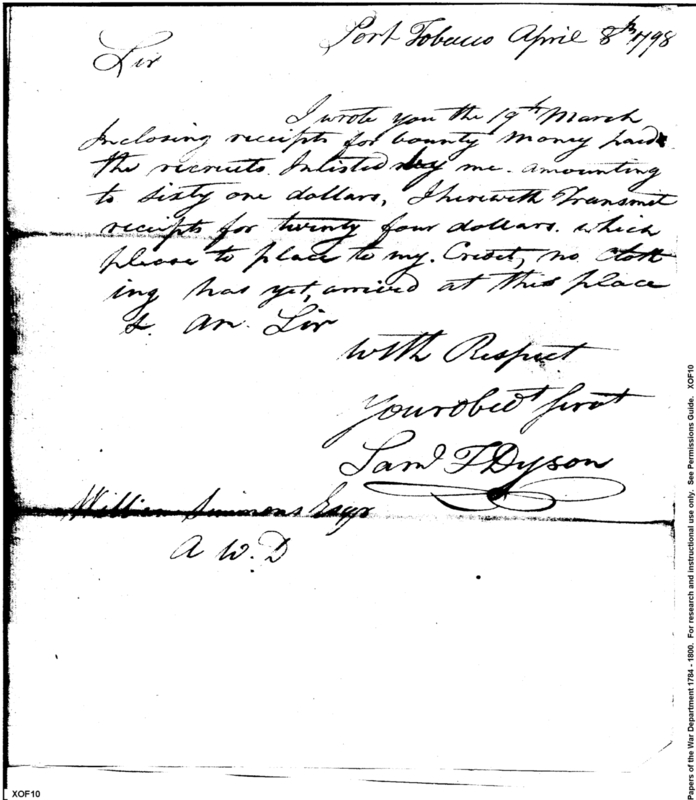 Port Tobacco April 8th 1798
Sir
I wrote you the 19th March
Inclosing receipts for bounty Money paid
the recruits Inlisted by me. amounting
to sixty one dollars, I herewith Transmit
receipts for twenty four dollars. which
please to place to my. Credit, no Cloth
ing has yet, arrived at this place
I. am. Sir
With Respect
Your obedt servt
Saml T Dyson
William Simmons Esqr
A W. D
Papers of the War Department 1784 - 1800. For research and instructional use only. See Permissions Guide. XOF10
XOF10